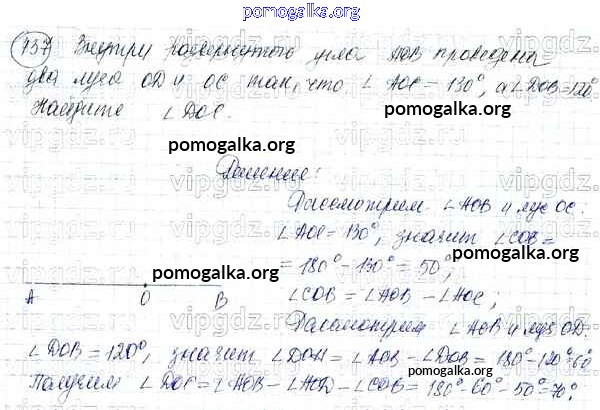 pomogalka.org
137 Внутри развернутого угла AOB проведены
два луча OD и OC так, что ∠AOC = 130°, а ∠DOB = 120°
Найдите ∠DOC.
pomogalka.org
pomogalka.org
Решение:
pomogalka.org
Рассмотрим ∠AOB и луч OC.
∠AOC = 130°, значит ∠COB =
pomogalka.org
= 180° - 130° = 50°;
pomogalka.org
∠COB = ∠AOB - ∠AOC;
A O B
Рассмотрим ∠AOB и луч OD.
pomogalka.org
∠DOB = 120°, значит ∠DOA = ∠AOB - ∠DOB = 180° - 120° = 60°
pomogalka.org
Получим ∠DOC = ∠AOB - ∠AOD - ∠COB = 180° - 60° - 50° = 70°.
pomogalka.org